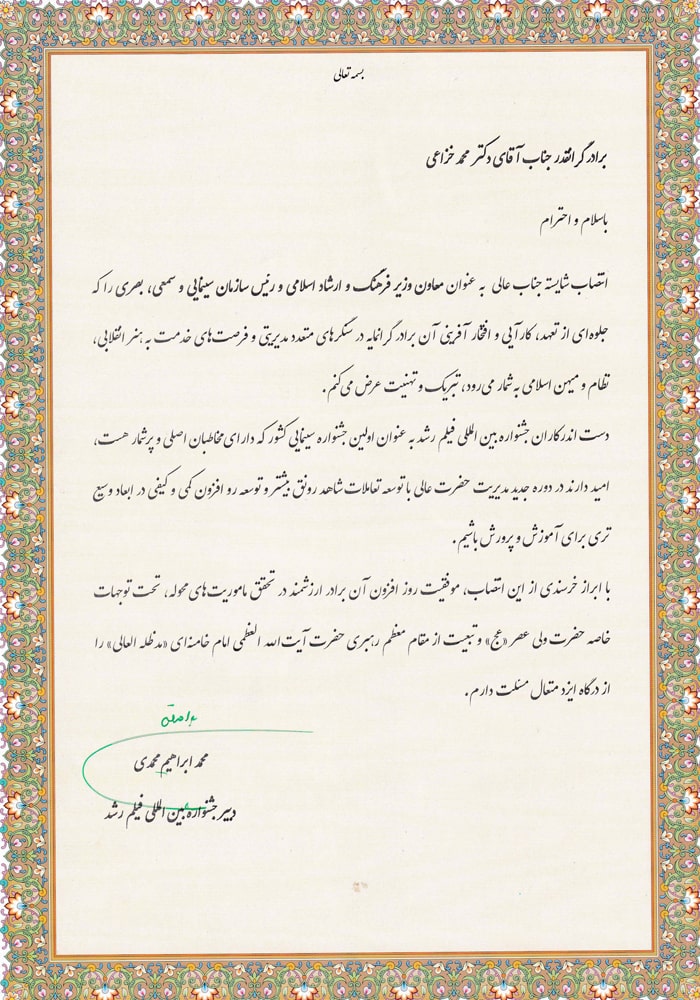 بسمه تعالی
برادر گرانقدر جناب آقای دکتر محمد خزاعی
باسلام و احترام
انتصاب شایسته جناب عالی به عنوان معاون وزیر فرهنگ و ارشاد اسلامی و رئیس سازمان سینمایی و سمعی، بصری را که
جلوه‌ای از تعهد، کارآیی و افتخار آفرینی آن برادر گرانمایه در سنگرهای متعدد مدیریتی و فرصت‌های خدمت به هنر انقلابی،
نظام و میهن اسلامی به شمار می‌رود، تبریک و تهنیت عرض می‌کنم.
دست اندرکاران جشنواره بین المللی فیلم رشد به عنوان اولین جشنواره سینمایی کشور که دارای مخاطبان اصلی و پرشمار هست،
امید دارند در دوره جدید مدیریت حضرت عالی با توسعه تعاملات شاهد رونق بیشتر و توسعه رو افزون کمی و کیفی در ابعاد وسیع
تری برای آموزش و پرورش باشیم.
با ابراز خرسندی از این انتصاب، موفقیت روز افزون آن برادر ارزشمند در تحقق ماموریت‌های محوله، تحت توجهات
خاصه حضرت ولی عصر «عج» و تبعیت از مقام معظم رهبری حضرت آیت الله العظمی امام خامنه‌ای «مدظله العالی» را
از درگاه ایزد متعال مسئلت دارم.
محمد ابراهیم محمدی
دبیر جشنواره بین المللی فیلم رشد